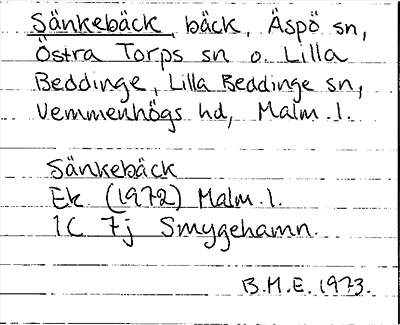 Sänkebäck, bäck, Äspö sn,
Östra Torps sn o. Lilla
Beddinge, Lilla Beddinge sn,
Vemmenhögs hd, Malm. l.
Sänkebäck
Ek (1972) Malm. l.
1C 7j Smygehamn.
B.M.E. 1973.